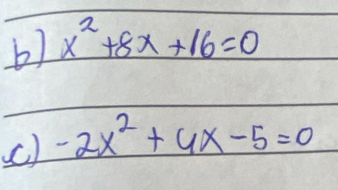 b) x² + 8x + 16 = 0
c) -2x² + 4x - 5 = 0